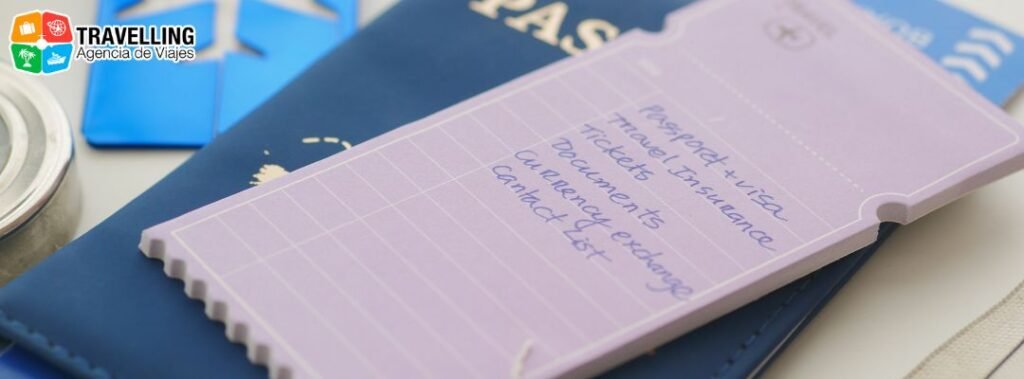 TRAVELLING
Agencia de Viajes
PAS
BO
Passport + visa
Travel Insurance
Tickets
Documents
Currency exchange
Contact List